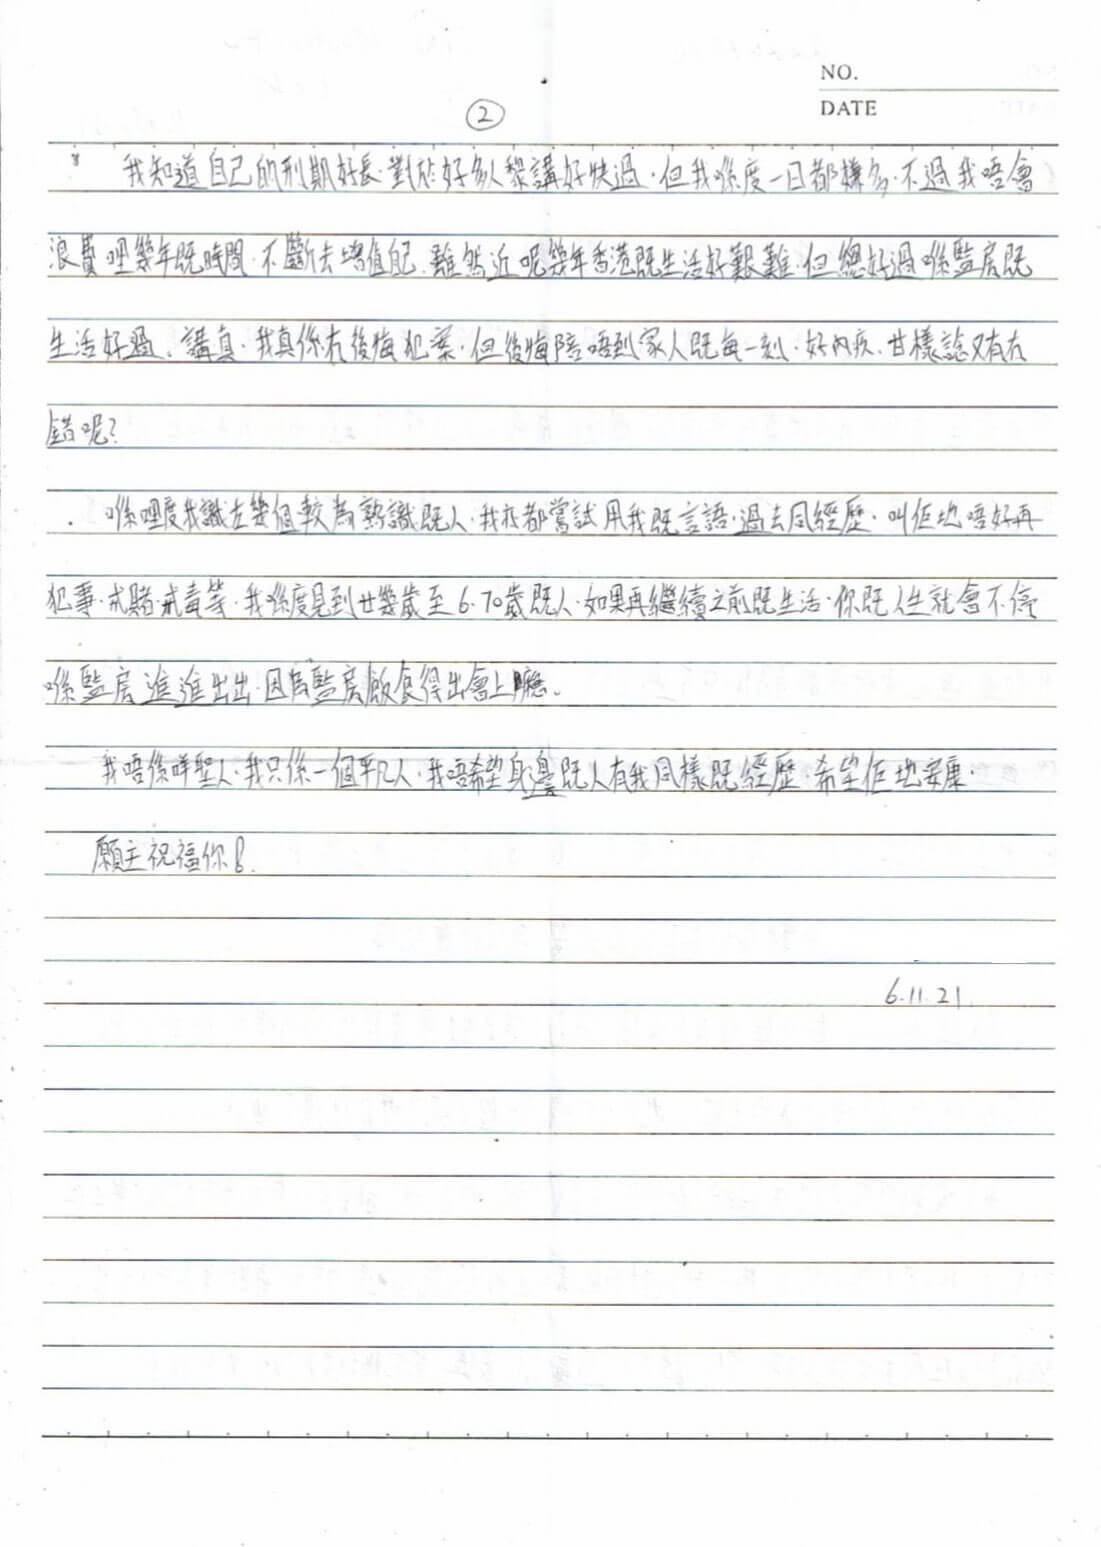 NO.
DATE
②
我知道自己的刑期好長．對於好多人黎講好快過．但我喺度一日都嫌多．不過我唔會
浪費哩幾年既時間．不斷去增值自己．雖然近呢幾年香港既生活好艱難．但總好過喺監房既
生活好過．講真．我真係冇後悔犯案．但後悔陪唔到家人既每一刻．好內疚．甘樣諗又有冇
錯呢？
喺哩度我識左幾個較為熟識既人．我都嘗試用我既言語．過去同經歷．叫佢地唔好再
犯事．戒賭．戒毒等．我喺度見到廿幾歲至6.70歲既人．如果再繼續之前既生活．你既人生就會不停
喺監房進進出出．因為監房飯食得出會上癮．
我唔係咩聖人．我只係一個平凡人．我唔希望身邊既人有我同樣既經歷．希望佢地安康．
願主祝福你！
6.11.21